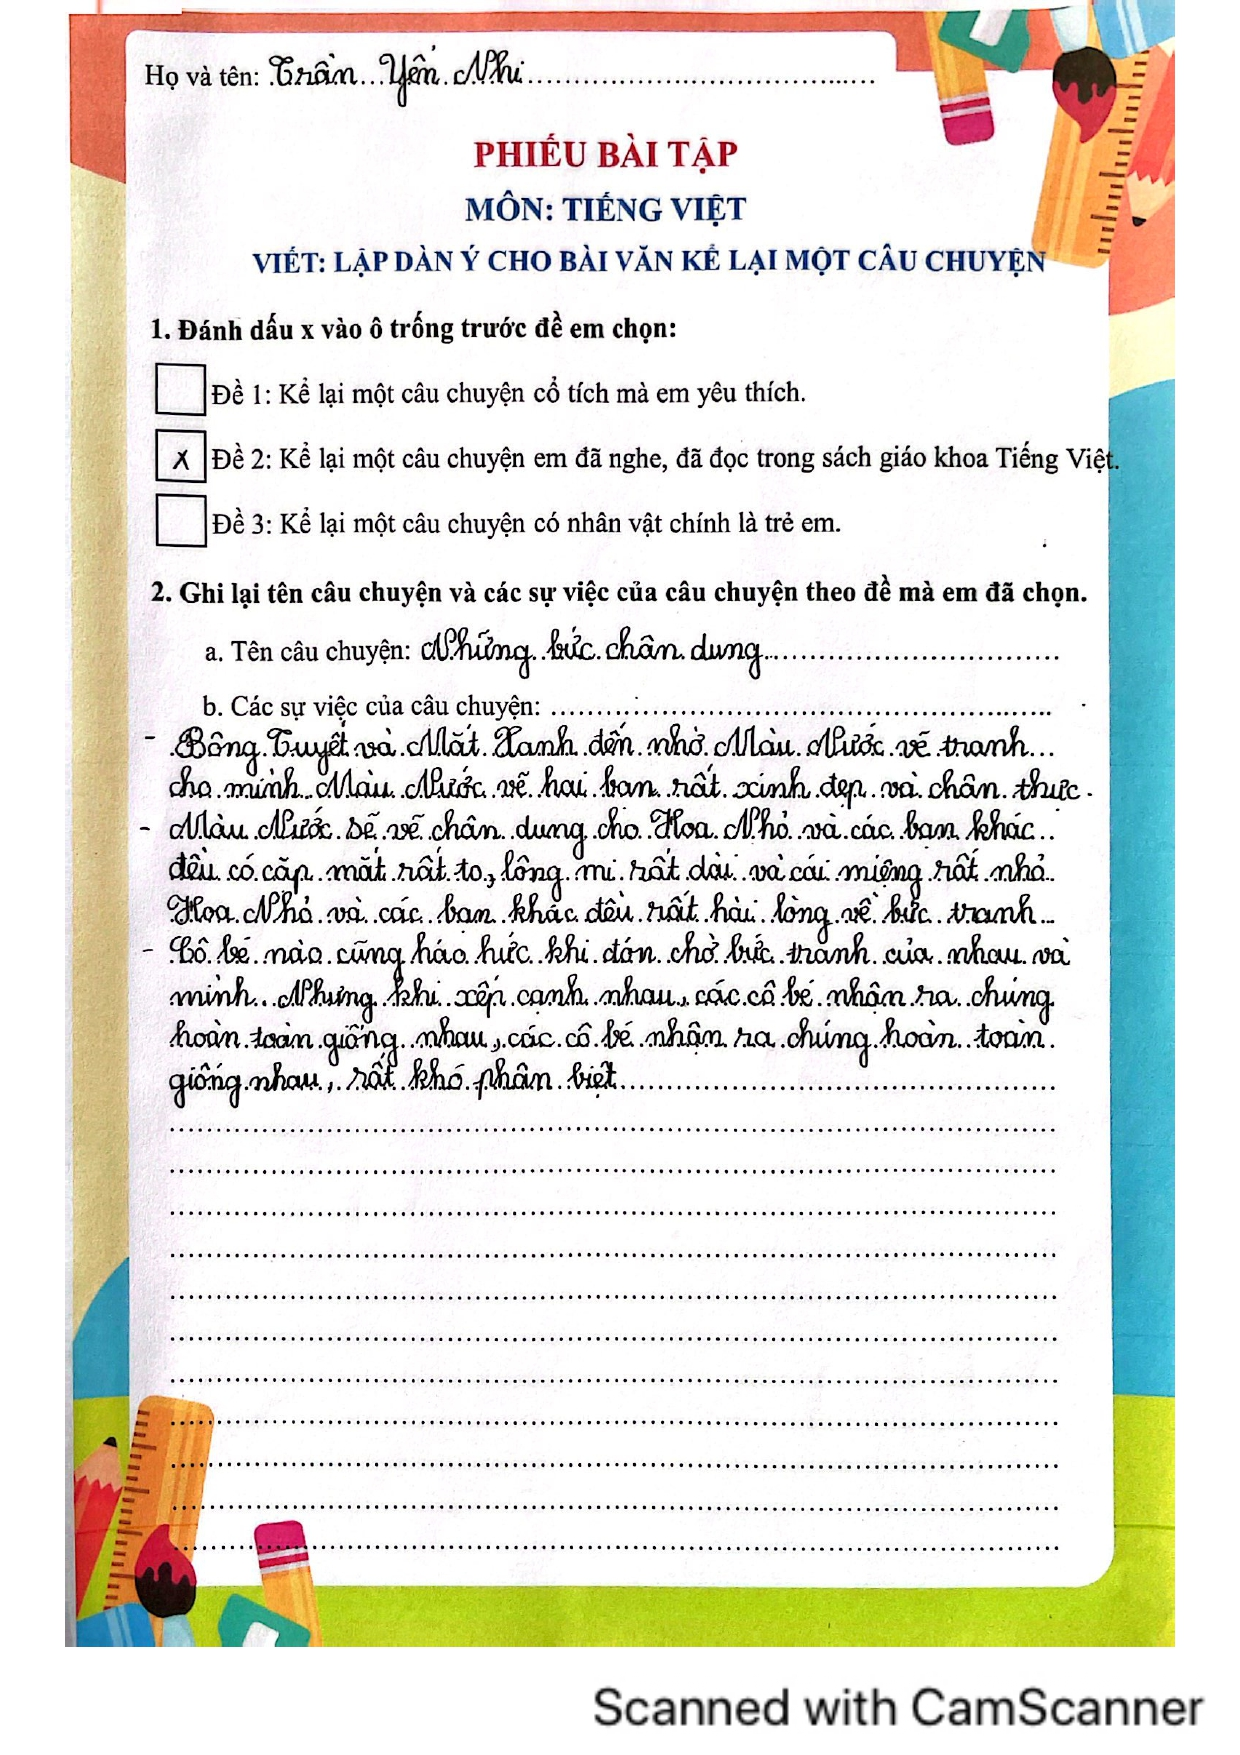 Họ và tên: Trần Yến Nhi
PHIẾU BÀI TẬP
MÔN: TIẾNG VIỆT
VIẾT: LẬP DÀN Ý CHO BÀI VĂN KỂ LẠI MỘT CÂU CHUYỆN
1. Đánh dấu x vào ô trống trước đề em chọn:
Đề 1: Kể lại một câu chuyện cổ tích mà em yêu thích.
x Đề 2: Kể lại một câu chuyện em đã nghe, đã đọc trong sách giáo khoa Tiếng Việt.
Đề 3: Kể lại một câu chuyện có nhân vật chính là trẻ em.
2. Ghi lại tên câu chuyện và các sự việc của câu chuyện theo đề mà em đã chọn.
a. Tên câu chuyện: Những bức chân dung
b. Các sự việc của câu chuyện:
- Bông Tuyết và Mắt Xanh đến nhờ Màu Nước vẽ tranh
cho mình. Màu Nước vẽ hai bạn rất xinh đẹp và chân thực.
- Màu Nước sẽ vẽ chân dung cho Hoa Nhỏ và các bạn khác
đều có cặp mắt rất to, lông mi rất dài và cái miệng rất nhỏ.
Hoa Nhỏ và các bạn khác đều rất hài lòng về bức tranh
- Cô bé nào cũng háo hức khi đón chờ bức tranh của nhau và
mình. Nhưng khi xếp cạnh nhau, các cô bé nhận ra chúng
hoàn toàn giống nhau, các cô bé nhận ra chúng hoàn toàn
giống nhau, rất khó phân biệt
Scanned with CamScanner